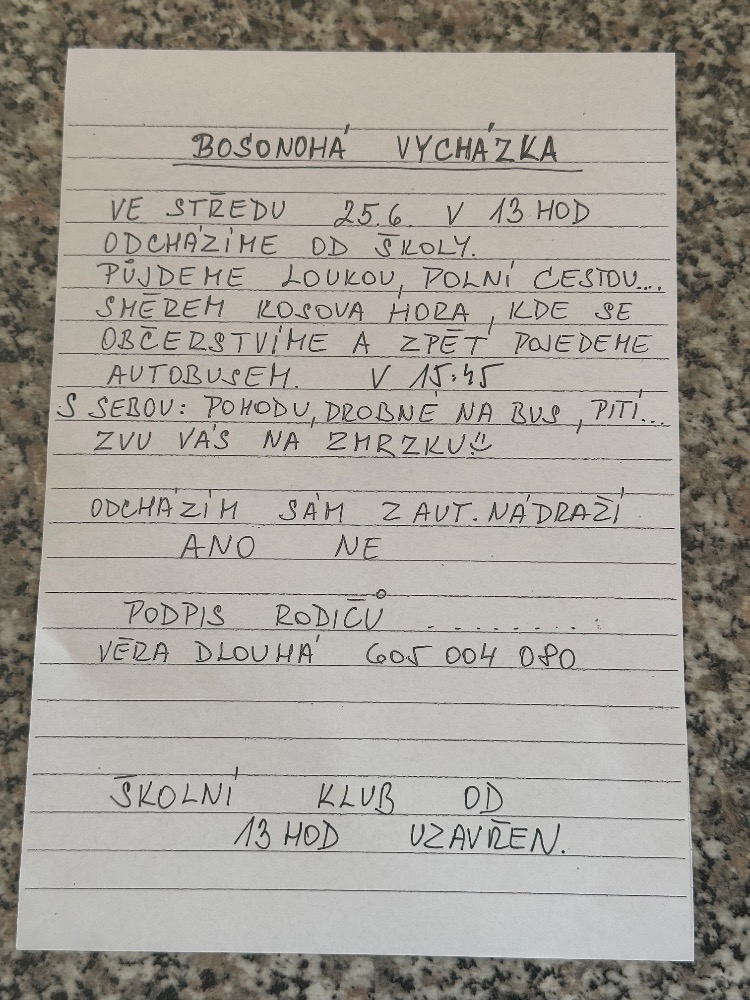 BOSONOHÁ VYCHÁZKA
VE STŘEDU 25.6. V 13 HOD
ODCHÁZÍME OD ŠKOLY.
PŮJDEME LOUKOU, POLNÍ CESTOU...
SMĚREM KOSOVA HORA, KDE SE
OBČERSTVÍME A ZPĚT POJEDEME
AUTOBUSEM. V 15:45
S SEBOU: POHODU, DROBNÉ NA BUS, PITÍ...
ZVU VÁS NA ZMRZKU☺
ODCHÁZÍM SÁM Z AUT. NÁDRAŽÍ
ANO NE
PODPIS RODIČŮ .........
VĚRA DLOUHÁ 605 004 080
ŠKOLNÍ KLUB OD
13 HOD UZAVŘEN.